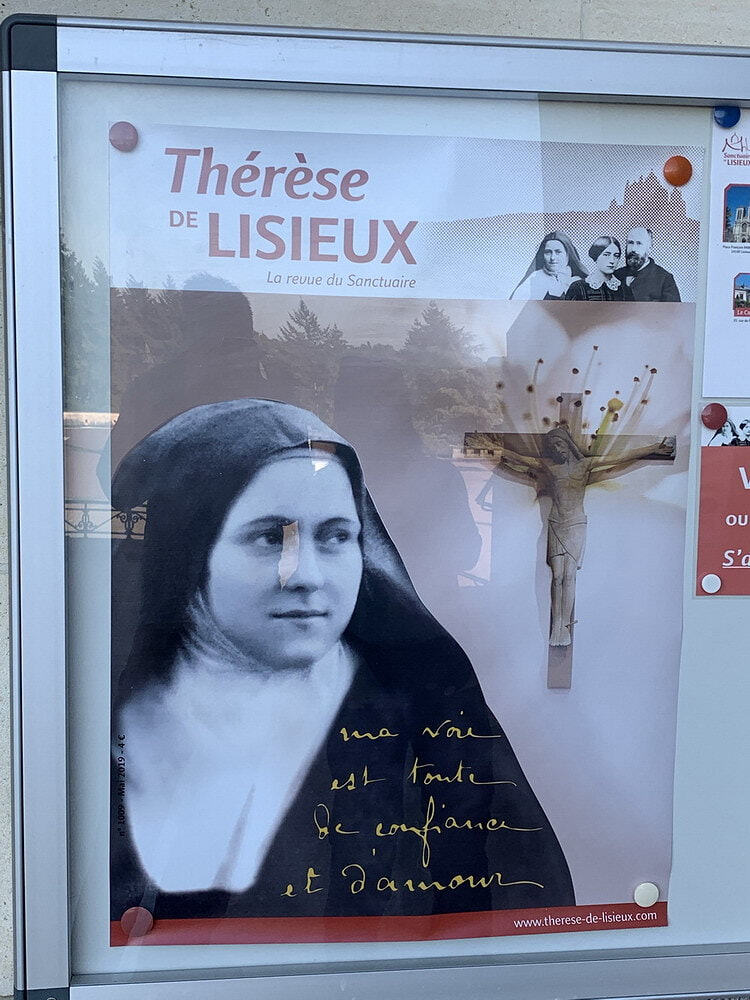 Thérèse
DE LISIEUX
La revue du Sanctuaire
ma voie
est toute
de confiance
et d'amour
n° 1009 - Mai 2019 - 4 €
www.therese-de-lisieux.com
Sanctuaire
LISIEUX
V
ou
S'a